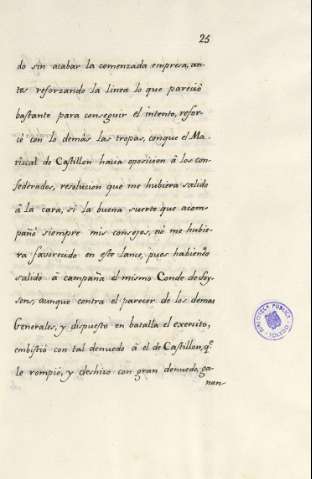 25
do sin acabar la comenzada empresa, an-
tes reforzando la linea lo que pareció
bastante para conseguir el intento, refor-
có con lo demás las tropas, con que el Ma-
riscal de Castillon hacia oposicion á los con-
federados, resolucion que me hubiera salido
á la cara, si la buena suerte que acom-
pañó siempre mis consejos, no me hubie-
ra favorecido en este lance, pues habiendo
salido á campaña el mismo Conde de Soy-
sons, aunque contra el parecer de los demas
Generales, y dispuesto en batalla el exercito,
embistió con tal denuedo á el de Castillon, q.e
lo rompió, y deshizo con gran denuedo, ga-
nan-
BIBLIOTECA PUBLICA
TOLEDO